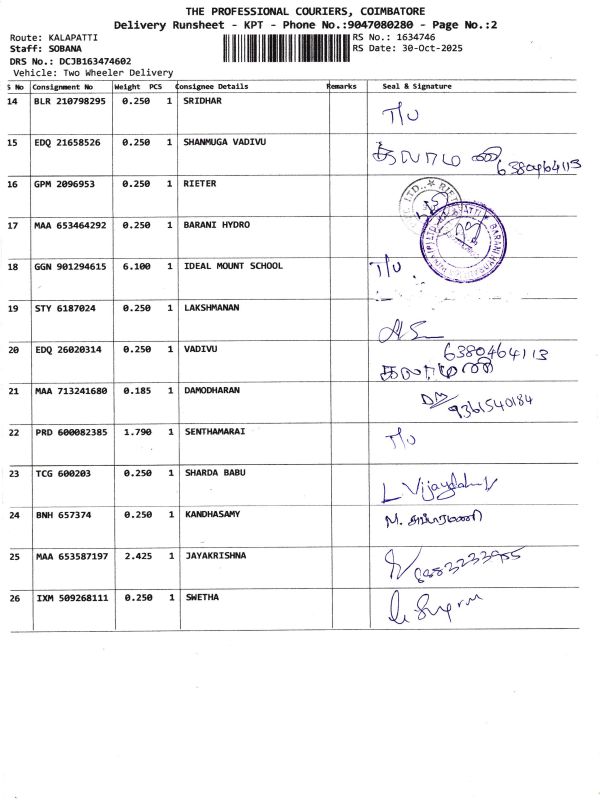 THE PROFESSIONAL COURIERS, COIMBATORE
Delivery Runsheet - KPT - Phone No.:9047080280 - Page No.:2
Route: KALAPATTI RS No.: 1634746
Staff: SOBANA RS Date: 30-Oct-2025
DRS No.: DCJB163474602
Vehicle: Two Wheeler Delivery
S No Consignment No Weight PCS Consignee Details Remarks Seal & Signature
14 BLR 210798295 0.250 1 SRIDHAR T/U
15 EDQ 21658526 0.250 1 SHANMUGA VADIVU 6380464113
16 GPM 2096953 0.250 1 RIETER
17 MAA 653464292 0.250 1 BARANI HYDRO
18 GGN 901294615 6.100 1 IDEAL MOUNT SCHOOL T/U
19 STY 6187024 0.250 1 LAKSHMANAN
20 EDQ 26020314 0.250 1 VADIVU 6380464113
21 MAA 713241680 0.185 1 DAMODHARAN 9361540184
22 PRD 600082385 1.790 1 SENTHAMARAI T/U
23 TCG 600203 0.250 1 SHARDA BABU
24 BNH 657374 0.250 1 KANDHASAMY
25 MAA 653587197 2.425 1 JAYAKRISHNA
26 IXM 509268111 0.250 1 SWETHA